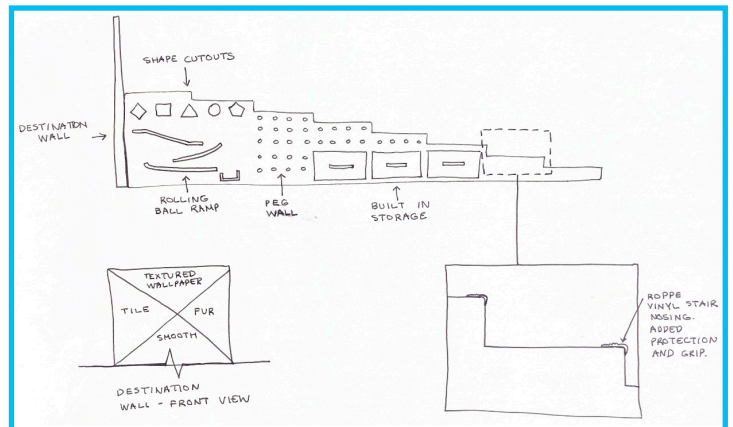 SHAPE CUTOUTS
DESTINATION
WALL
ROLLING
BALL RAMP
PEG
WALL
BUILT IN
STORAGE
TEXTURED
WALLPAPER
TILE
FUR
SMOOTH
DESTINATION
WALL - FRONT VIEW
ROPPE
VINYL STAIR
NOSING.
ADDED
PROTECTION
AND GRIP.